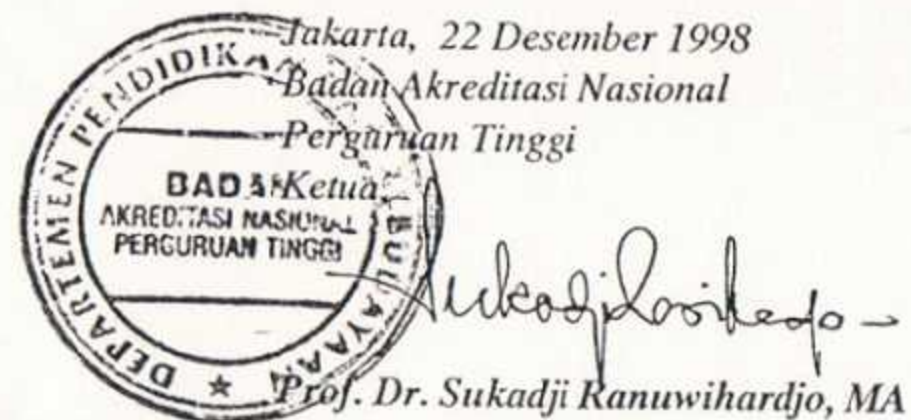 Jakarta, 22 Desember 1998
Badan Akreditasi Nasional
Perguruan Tinggi
Ketua,
DEPARTEMEN PENDIDIKAN
BADAN
AKREDITASI NASIONAL
PERGURUAN TINGGI
Prof. Dr. Sukadji Ranuwihardjo, MA